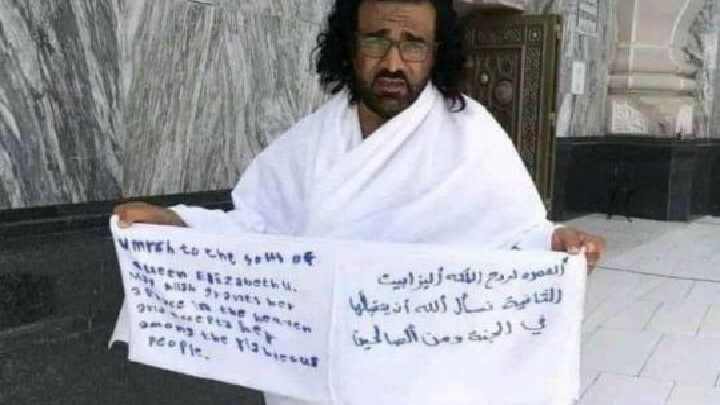 umrah to the soul of
Queen Elizabeth II.
May allah grants her
a place in the heaven
and accepts her
among the righteous
people.
العمرة لروح الملكة أليزابيث
الثانية نسأل الله أن يتقبلها
في الجنة ومن الصالحين